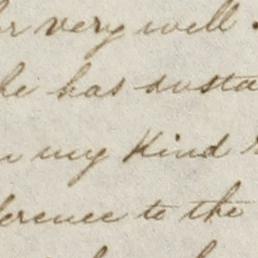 very well.
he has susta
my Kind
ference to the